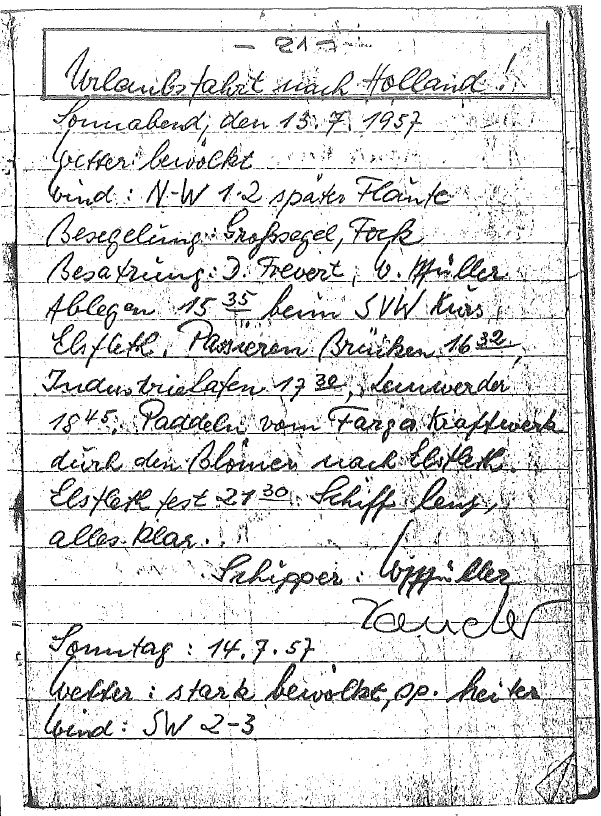 - 21 -
Urlaubsfahrt nach Holland!
Sonnabend, den 13.7.1957
Wetter: bewölkt
Wind: N-W 1-2 später Flaute
Besegelung: Großsegel, Fock
Besatzung: D. Frevert, W. Müller
Ablegen 15 35 beim SVW Kurs
Elsfleth. Passieren Brücken 16 32,
Industriehafen 17 30, Lemwerder
18 45. Paddeln vom Farger Kraftwerk
durch den Blömer nach Elsfleth.
Elsfleth fest 21 30. Schiff lenz,
alles klar.
Schipper: W Müller
Sonntag: 14.7.57
Wetter: stark bewölkt, sp. heiter
Wind: SW 2-3